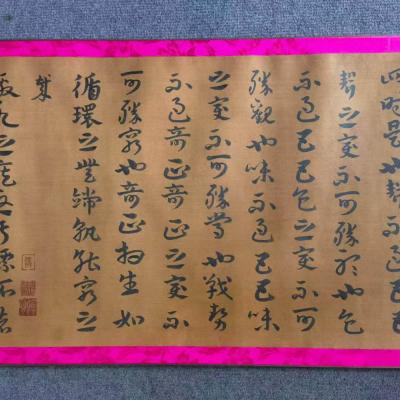 四時是也聲不過五五
聲之變不可勝聽也色
不過五五色之變不可
勝觀也味不過五五味
之變不可勝嘗也戰勢
不過奇正奇正之變不
可勝窮也奇正相生如
循環之無端孰能窮之
哉
激水之疾至於漂石者